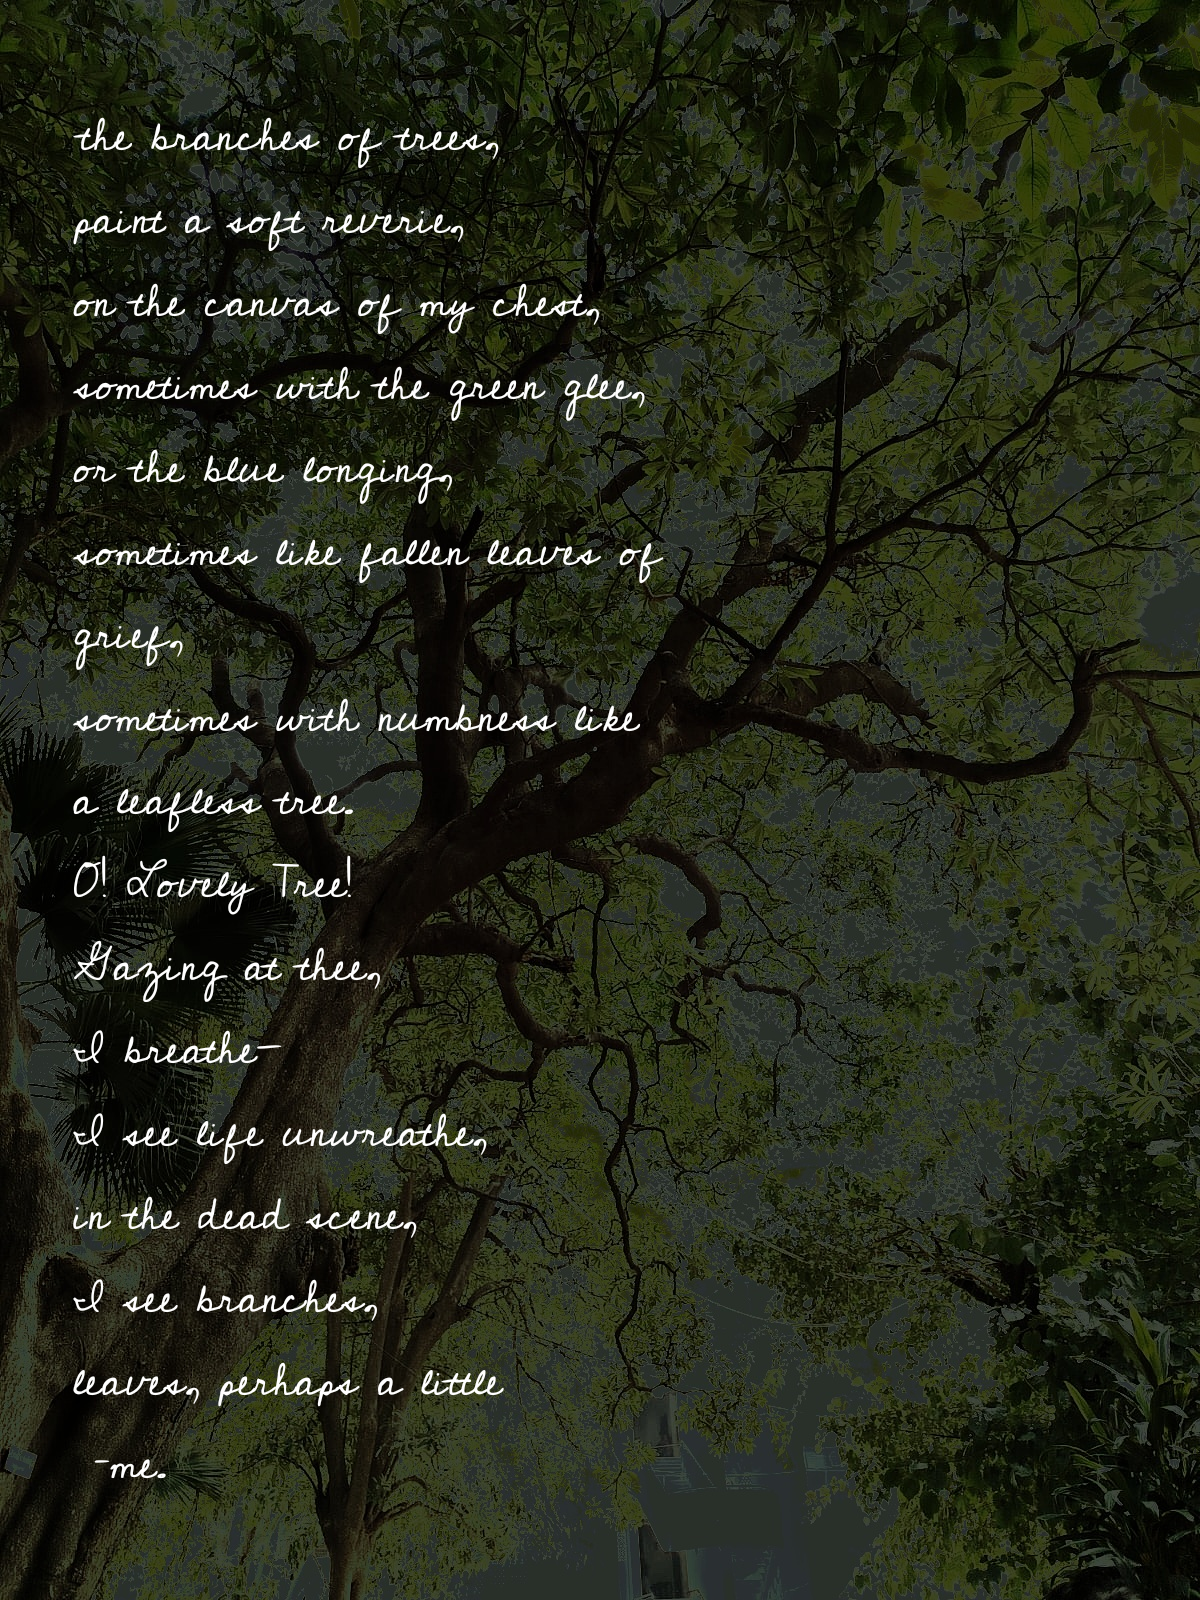 the branches of trees,
paint a soft reverie,
on the canvas of my chest,
sometimes with the green glee,
or the blue longing,
sometimes like fallen leaves of
grief,
sometimes with numbness like
a leafless tree.
O! Lovely Tree!
Gazing at thee,
I breathe–
I see life unwreathe,
in the dead scene,
I see branches,
leaves, perhaps a little
-me.